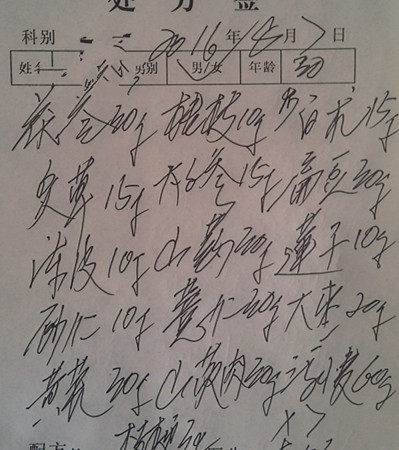 处方签
科别 2016年 月7日
姓名 别 男/女 年龄 30
茯苓30g 桂枝10g 炒白术15g
炙草15g 太子参15g 扁豆30g
陈皮10g 山药30g 莲子10g
砂仁10g 薏仁30g 大枣20g
黄芪30g 山萸肉30g 浮小麦60g
配方